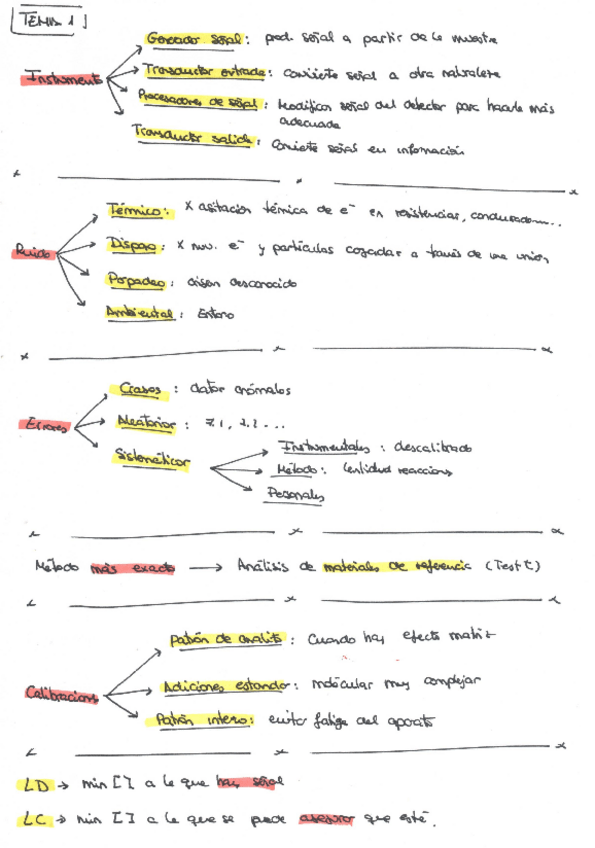 TEMA 1
Instrumento
Generador señal: prod. señal a partir de la muestra
Transductor entrada: convierte señal a otra naturaleza
Procesadores de señal: Modifican señal del detector para hacerla más
adecuada
Transductor salida: Convierte señal en información
Ruido
Térmico: x agitación térmica de e⁻ en resistencias,
Disparo: x mov. e⁻ y partículas cargadas a través de una unión
Parpadeo: origen desconocido
Ambiental: Entorno
Errores
Crasos: datos anómalos
Aleatorios: 7.1, 7.2 ...
Sistemáticos
Instrumentales: descalibrado
Método: lentitud reacciones
Personales
Método más exacto → Análisis de materiales de referencia (Test t)
Calibraciones
Patrón de analito: Cuando hay efecto matriz
Adiciones estándar: moléculas muy complejas
Patrón interno: evita fatiga del aparato
LD → min [ ] a la que hay señal
LC → min [ ] a la que se puede asegurar que esté.